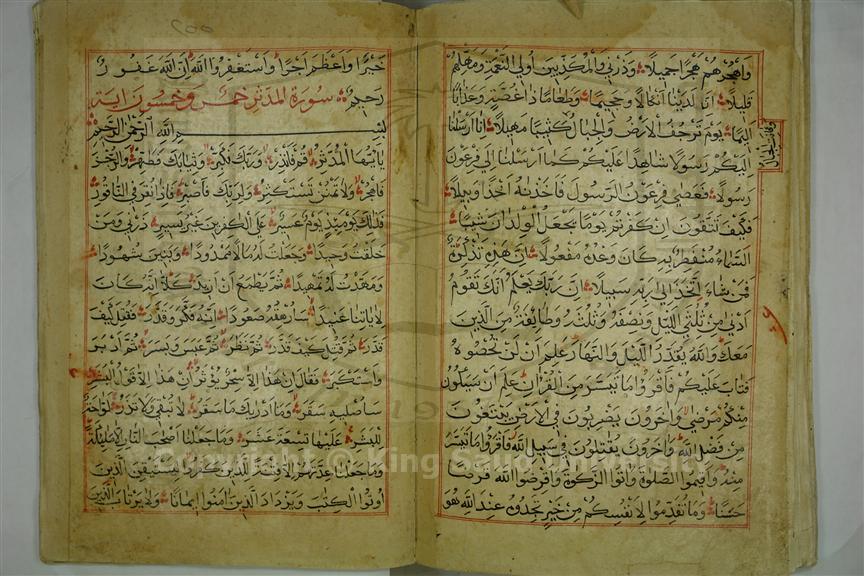 واهجرهم هجرا جميلا وذرني والمكذبين اولي النعمة ومهلهم
قليلا ان لدينا انكالا وجحيما وطعاما ذا غصة وعذابا
اليما يوم ترجف الارض والجبال وكانت الجبال كثيبا مهيلا انا ارسلنا
اليكم رسولا شاهدا عليكم كما ارسلنا الى فرعون
رسولا فعصى فرعون الرسول فاخذناه اخذا وبيلا
فكيف تتقون ان كفرتم يوما يجعل الولدان شيبا
السماء منفطر به كان وعده مفعولا ان هذه تذكرة
فمن شاء اتخذ الى ربه سبيلا ان ربك يعلم انك تقوم
ادنى من ثلثي الليل ونصفه وثلثه وطائفة من الذين
معك والله يقدر الليل والنهار علم ان لن تحصوه
فتاب عليكم فاقرؤا ما تيسر من القران علم ان سيكون
منكم مرضى واخرون يضربون في الارض يبتغون
من فضل الله واخرون يقاتلون في سبيل الله فاقرؤا ما تيسر
منه واقيموا الصلوة واتوا الزكوة واقرضوا الله قرضا
حسنا وما تقدموا لانفسكم من خير تجدوه عند الله هو
خيرا واعظم اجرا واستغفروا الله ان الله غفور
رحيم سورة المدثر خمس وخمسون اية
بسم الله الرحمن الرحيم
يا ايها المدثر قم فانذر وربك فكبر وثيابك فطهر والرجز
فاهجر ولا تمنن تستكثر ولربك فاصبر فاذا نقر في الناقور
فذلك يومئذ يوم عسير على الكفرين غير يسير ذرني ومن
خلقت وحيدا وجعلت له مالا ممدودا وبنين شهودا
ومهدت له تمهيدا ثم يطمع ان ازيد كلا انه كان
لاياتنا عنيدا سارهقه صعودا انه فكر وقدر فقتل كيف
قدر ثم قتل كيف قدر ثم نظر ثم عبس وبسر ثم ادبر
واستكبر فقال ان هذا الا سحر يؤثر ان هذا الا قول البشر
ساصليه سقر وما ادريك ما سقر لا تبقي ولا تذر لواحة
للبشر عليها تسعة عشر وما جعلنا اصحب النار الا ملئكة
وما جعلنا عدتهم الا فتنة للذين كفروا ليستيقن الذين
اوتوا الكتب ويزداد الذين امنوا ايمانا ولا يرتاب الذين
Copyright © King Saud University